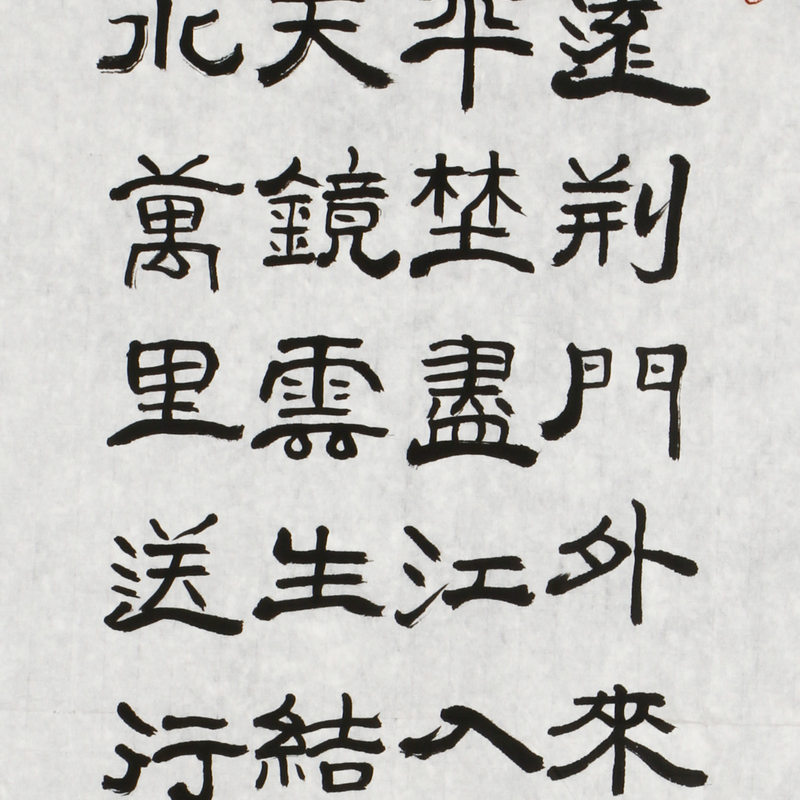 遠荆門外來
平埜盡江入
天鏡雲生結
水萬里送行